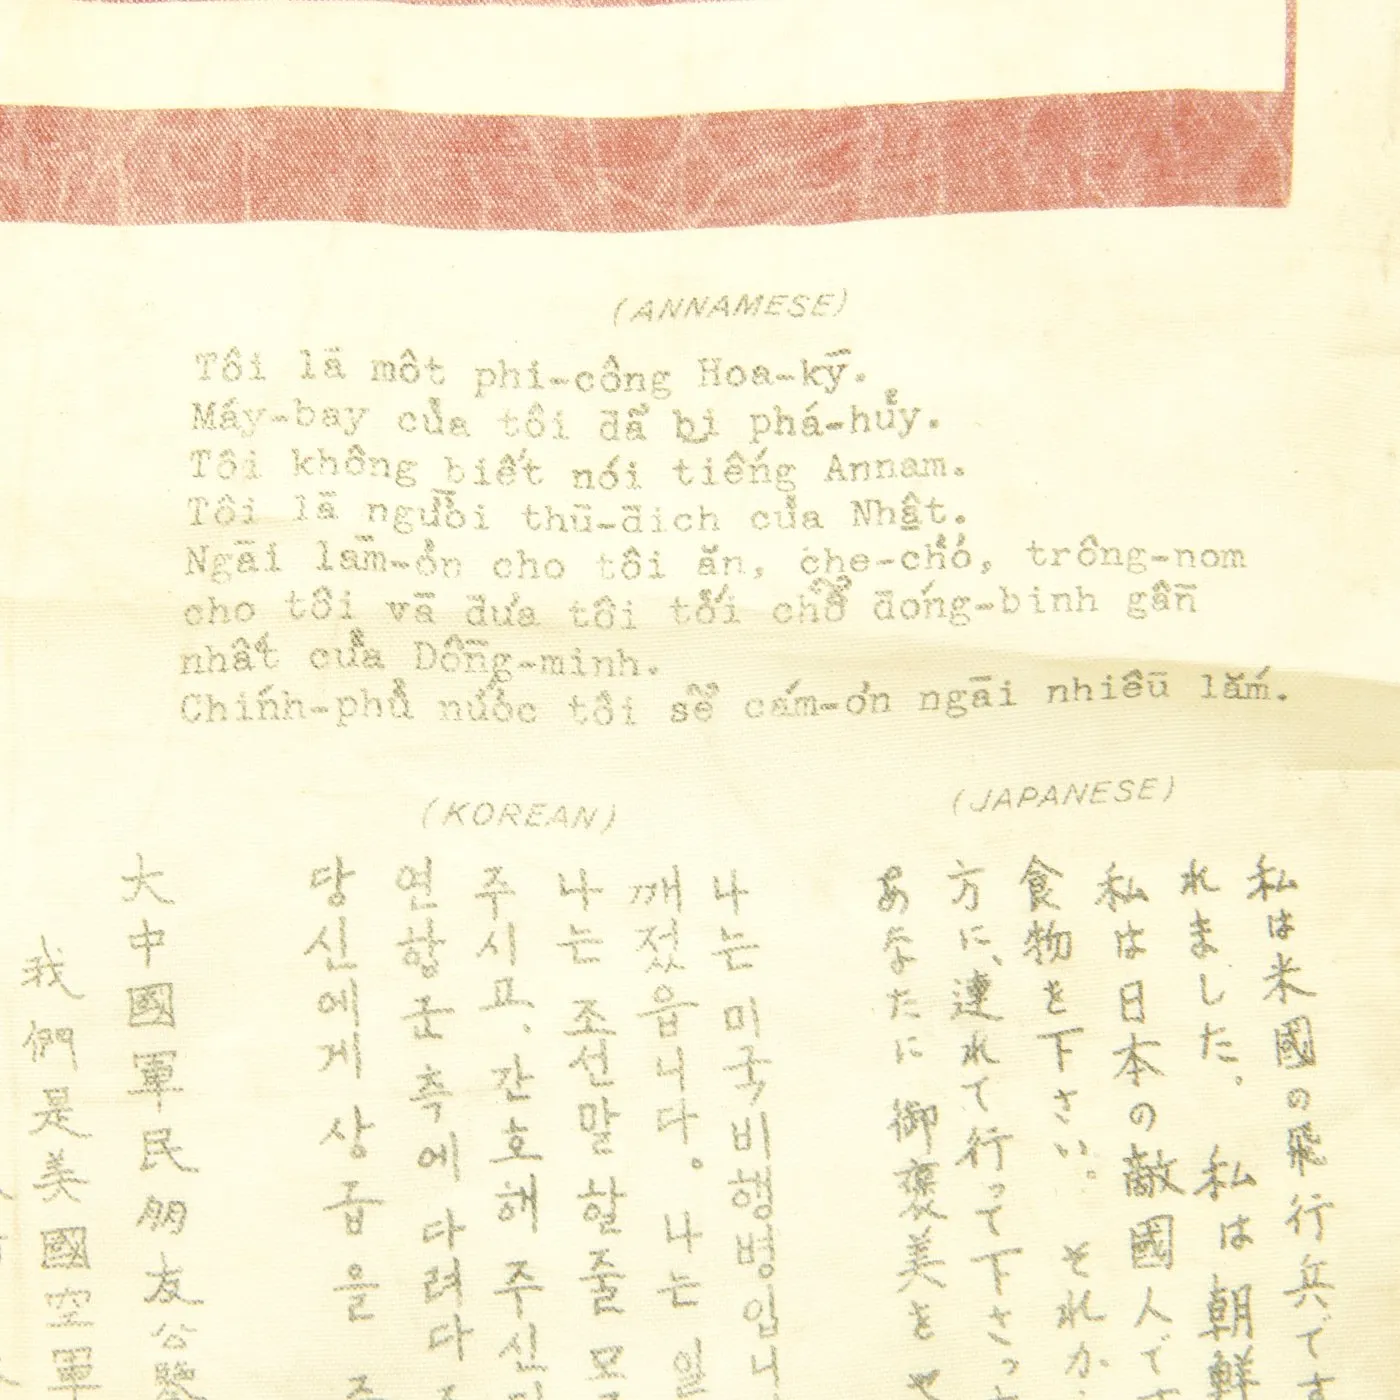 (ANNAMESE)
Tôi lā một phi-công Hoa-kȳ.
Máy-bay của tôi đã bị phá-hủy.
Tôi không biết nói tiếng Annam.
Tôi lā người thū-địch của Nhật.
Ngāi lām-ơn cho tôi ăn, che-chở, trông-nom
cho tôi vā đưa tôi tới chỗ đóng-binh gần
nhất của Đồng-minh.
Chính-phủ nước tôi sẽ cám-ơn ngāi nhiều lắm.
(KOREAN)
(JAPANESE)
私は米國の飛行兵です
れました。 私は朝鮮
私は日本の敵國人で
食物を下さい。 それか
方に、連れて行って下さっ
あなたに御褒美をや
나는 미국 비행병입니
깨젔읍니다。 나는 일
나는 조선말 할줄 모
주시고. 간호해 주신
연합군 측에 다려다
당신에게 상급을
大中國軍民朋友公鑒
我們是美國空軍